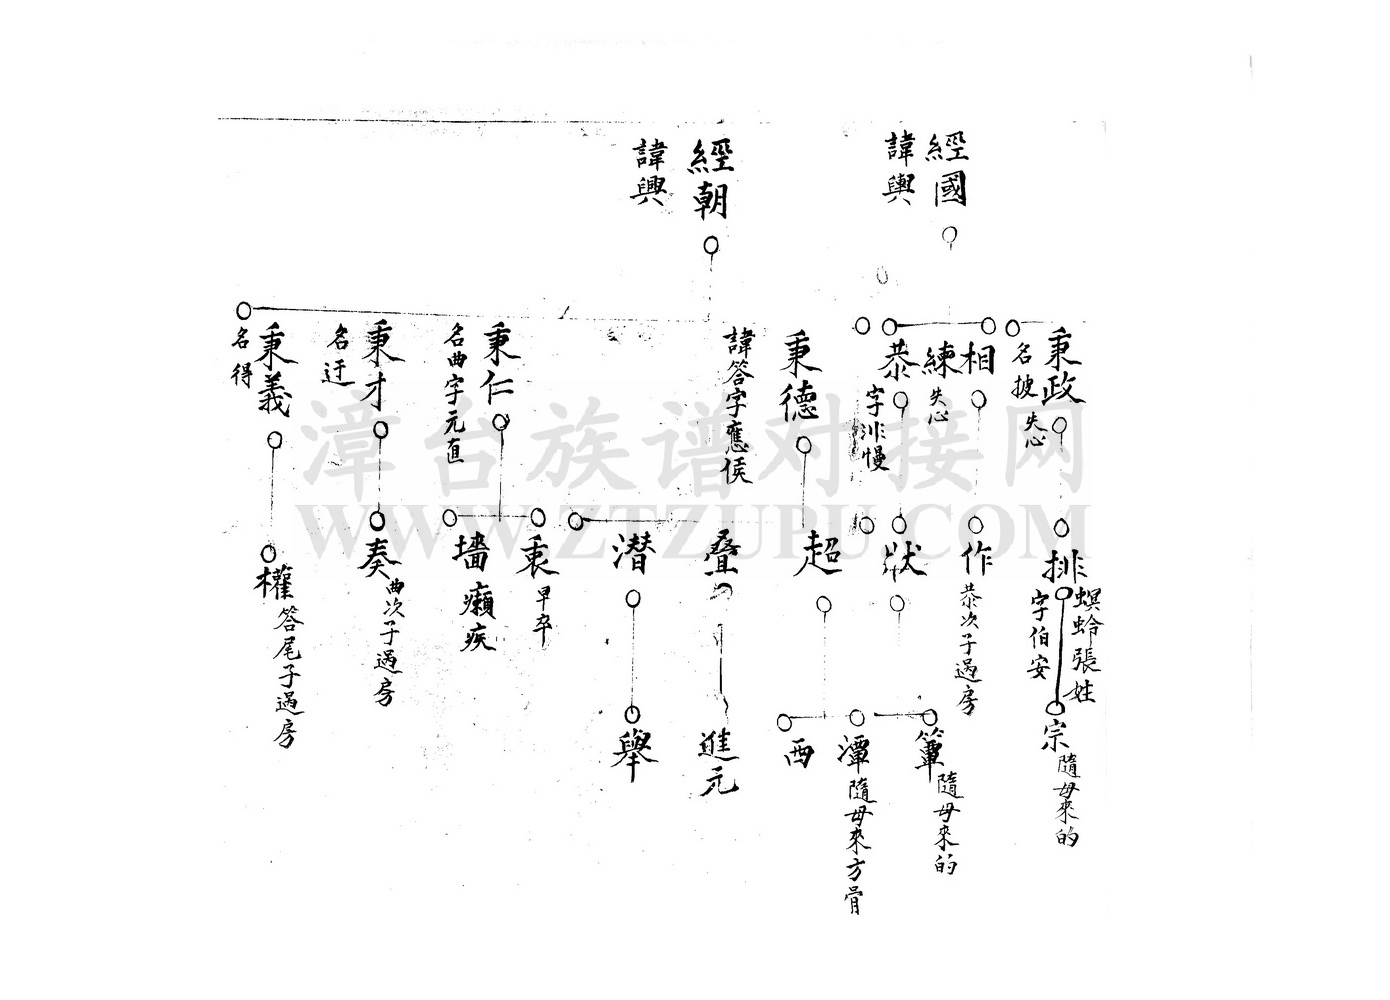 經國
諱輿
經朝
諱興
秉政
名披
失心
相
練
失心
恭
字排慢
秉德
諱答字應侯
秉仁
名曲字元直
秉才
名迂
秉義
名得
排
螟蛉張姓
字伯安
作
恭次子過房
狀
超
疊
潛
秉
早卒
墻
癩疾
奏
曲次子過房
權
答尾子過房
宗
隨母來的
簞
隨母來的
潭
隨母來方骨
西
進元
舉
漳台族谱对接网
WWW.ZTZUPU.COM